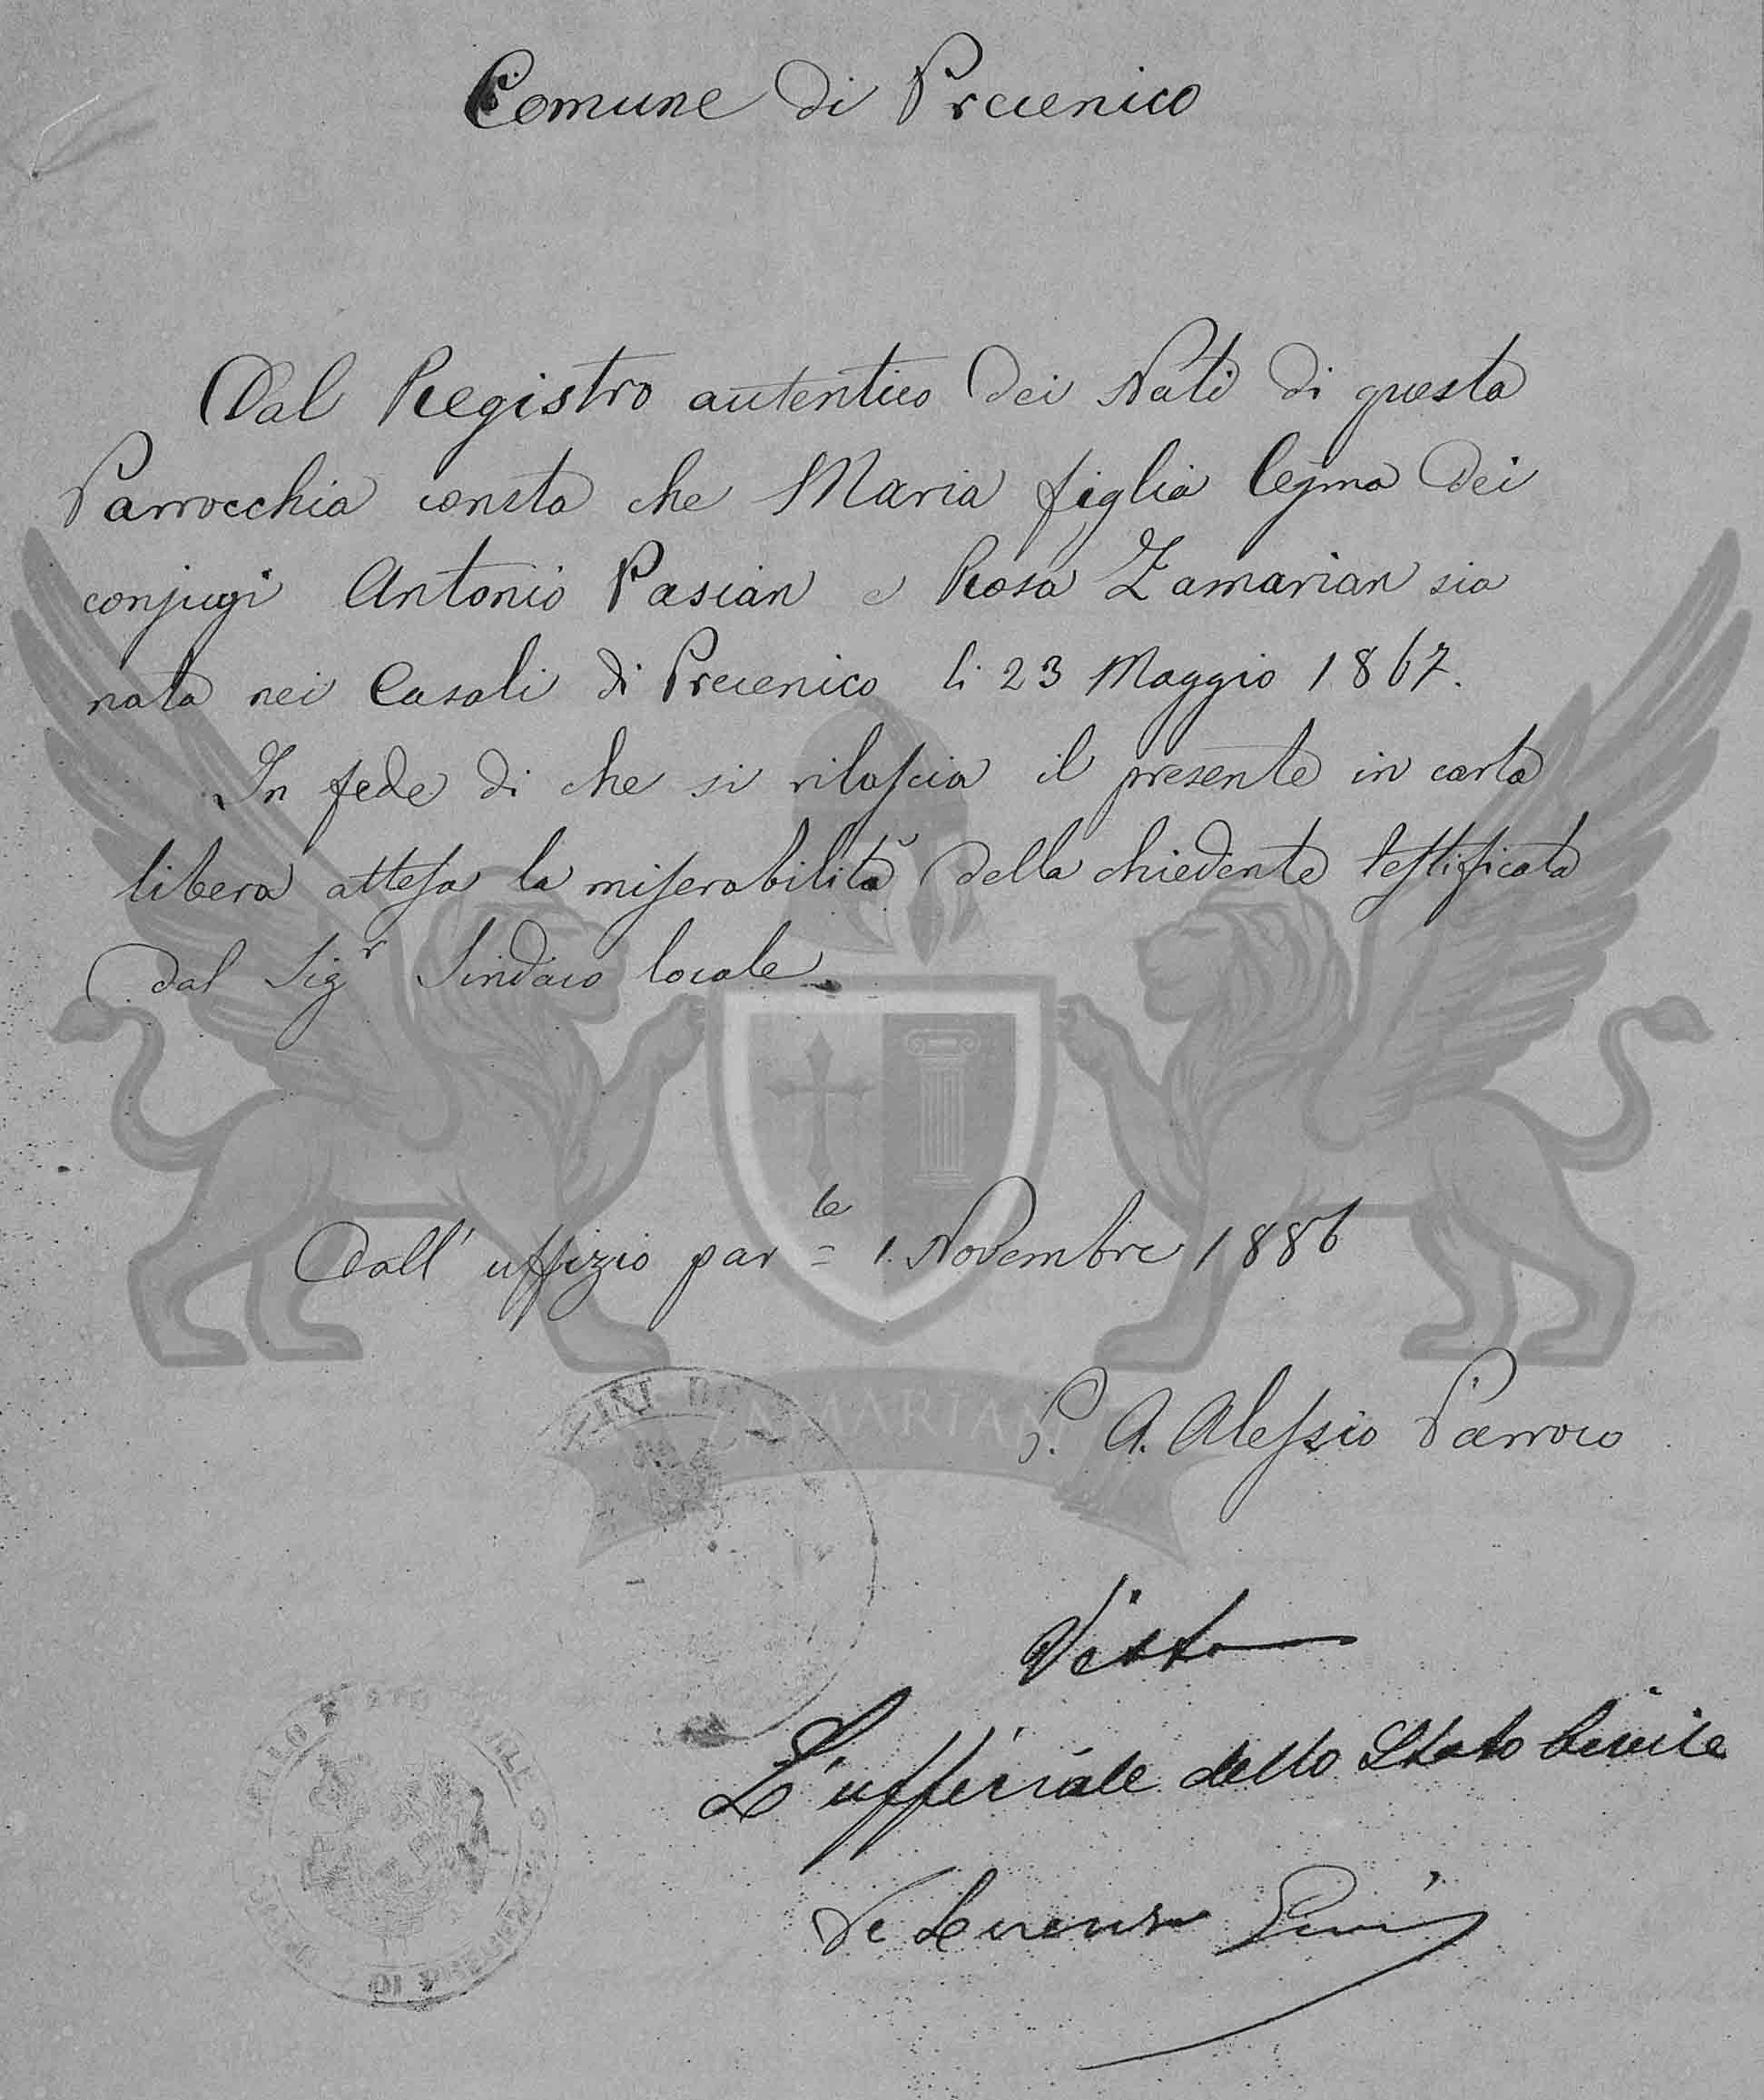 Comune di Precenico
Dal Registro autentico dei Nati di questa
Parrocchia consta che Maria figlia legma dei
conjugi Antonio Pasian e Rosa Zamarian sia
nata nei Casali di Precenico li 23 Maggio 1867.
In fede di che si rilascia il presente in carta
libera attesa la miserabilità della chiedente testificata
dal Sigr Sindaco locale.
Dall' uffizio parle 1. Novembre 1886
P. A. Alessio Parroco
ZAMARIAN
Visto
L'ufficiale dello Stato Civile
De Lorenzo
DI PRECENICO